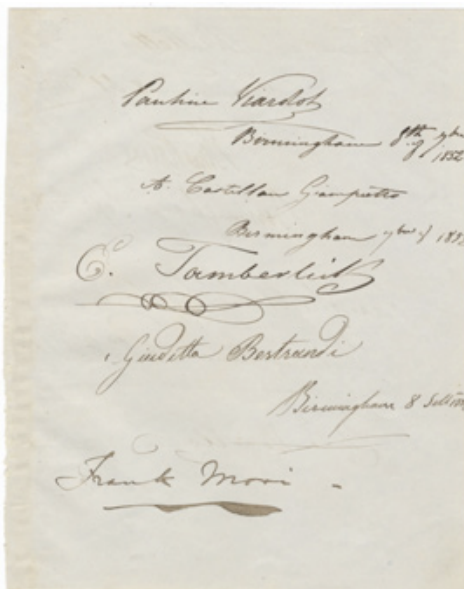 Pauline Viardot
Birmingham 8th of 7bre
1852
A. Castellan Giampietro
Birmingham 7bre
E. Tamberlick
Giuditta Bertrandi
Birmingham 8
Frank Mori